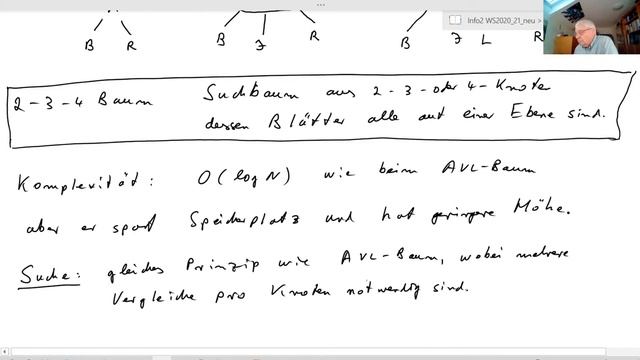 B R B J R B J L R
Info2 WS2020_21_neu >
2-3-4 Baum Suchbaum aus 2-3-oder 4-Knoten
dessen Blätter alle auf einer Ebene sind.
Komplexität: O(log N) wie beim AVL-Baum
aber er spart Speicherplatz und hat geringere Höhe.
Suche: gleiches Prinzip wie AVL-Baum, wobei mehrere
Vergleiche pro Knoten notwendig sind.